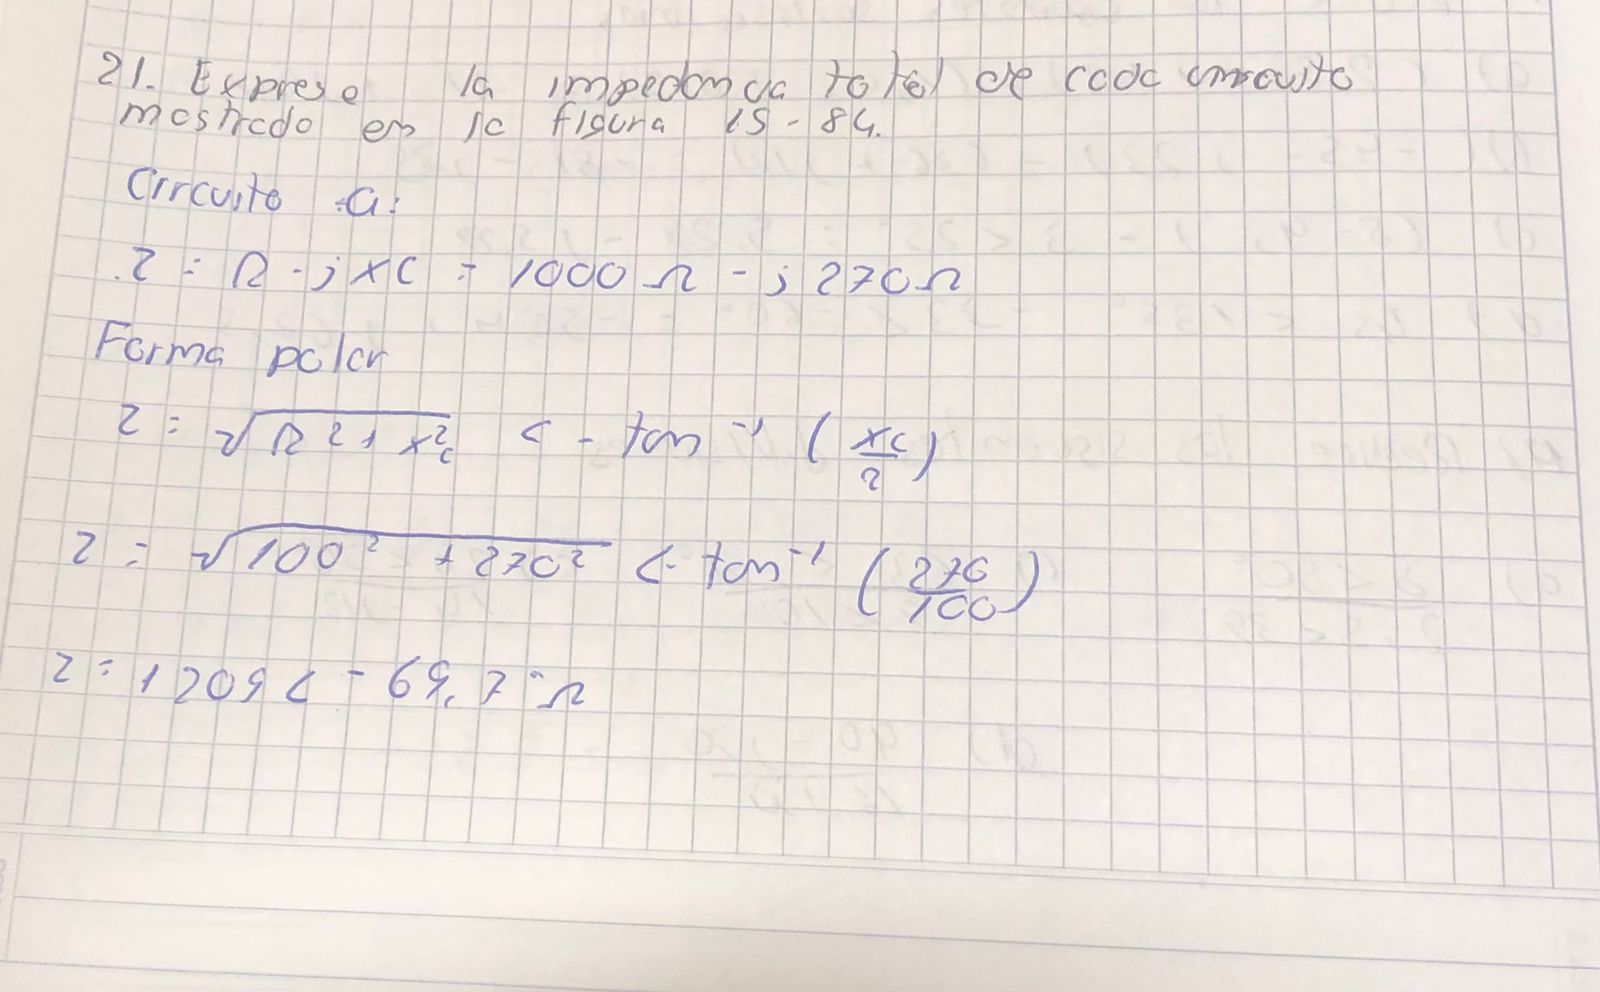 21. Exprese la impedancia total de cada circuito
mostrado en la figura 15-84.
Circuito a:
Z = R - jXC = 1000 Ω - j 270Ω
Forma polar
Z = √R²+X²c < - tan⁻¹ (XC/R)
Z = √100² + 270² < - tan⁻¹ (270/100)